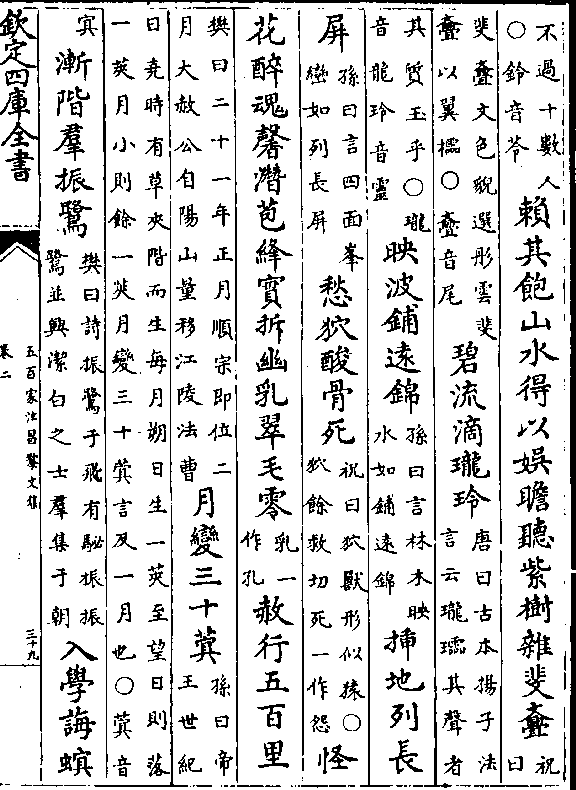 不過十數人○鈴音苓賴其飽山水得以娛瞻聽紫樹雜斐亹祝曰
斐亹文色貌選彤雲斐亹以翼櫺○亹音尾碧流滴瓏玲唐曰古本揚子法言云瓏瓀其聲者
其質玉乎○瓏音龍玲音靈映波鋪遠錦孫曰言林木映水如鋪遠錦挿地列長
屏孫曰言四面峯巒如列長屏愁狖酸骨死祝曰狖獸形似猿○狖餘救切死一作怨怪
花醉魂馨潛苞絳實拆幽乳翠毛零乳一作孔赦行五百里
樊曰二十一年正月順宗即位二月大赦公自陽山量移江陵法曹月變三十蓂孫曰帝王世紀
曰堯時有草夾階而生每月朔日生一莢至望日則落一莢月小則餘一莢月變三十蓂言及一月也○蓂音
冥漸階羣振鷺樊曰詩振鷺于飛有駜振振鷺並興潔白之士羣集于朝入學誨螟
欽定四庫全書
五百家注昌黎文集
卷二
三十九